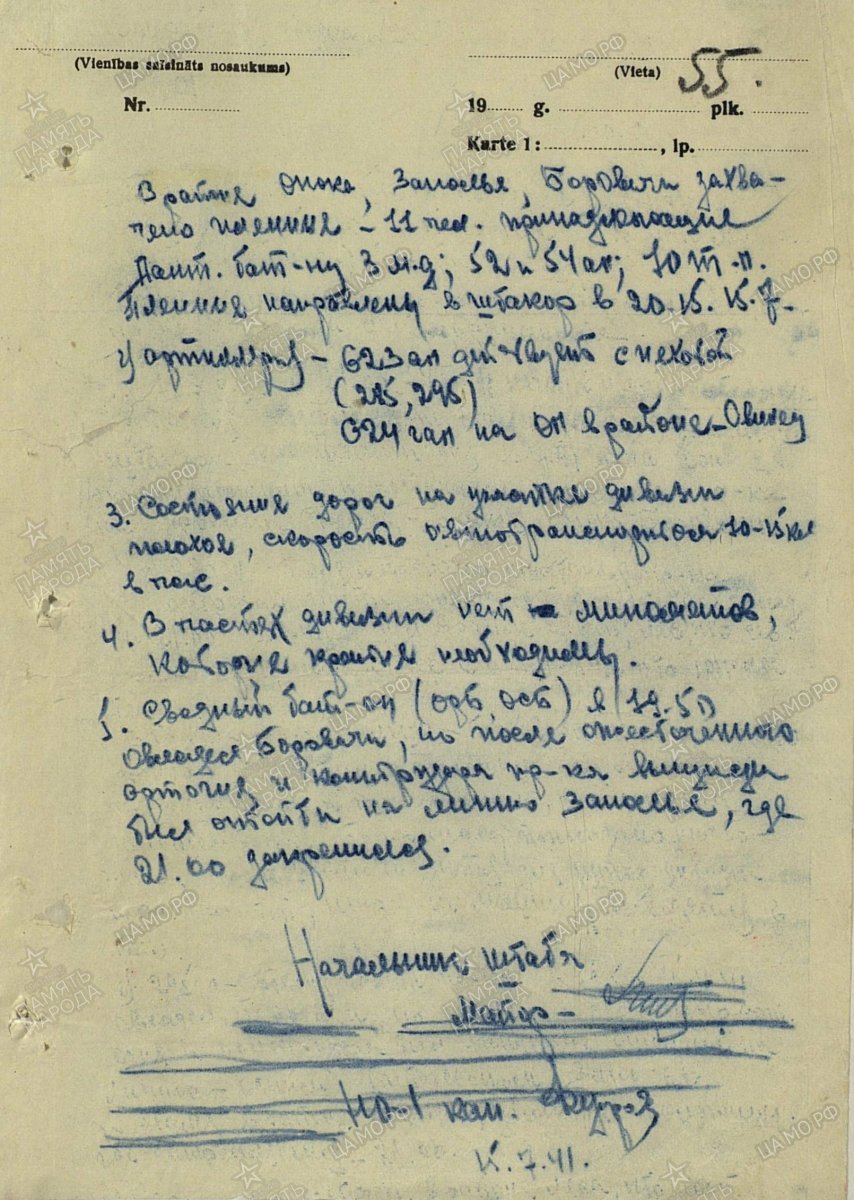 (Vienības saīsināts nosaukums)
(Vieta) 55.
Nr.
19 g. plk.
Karte 1: , lp.
В районе Опока, Заполье, Боровичи захва-
чено пленные – 11 чел. принадлежащие
бат-ну 3 м.д; 52 и 54 ап; 10 т.п.
Пленные направлены в штакор в 20.15. 15.7.
артиллерия – 623 ап действует с пехотой
(285, 295)
624 гап на ОП в районе –
3. Состояние дорог на участке дивизии
плохое, скорость автотранспорта 10-15 км
в час.
4. В частях дивизии нет минометов,
которые крайне необходимы.
5. Сводный бат-он (орб, осб) в 19.50
овладел Боровичи, но после ожесточенного
артогня и контрудара пр-ка вынужден
был отойти на линию Заполье, где
21.00 закрепился.
Начальник штаба
Майор –
НО-1 кап.
15.7.41.
ПАМЯТЬ НАРОДА
ЦАМО.РФ